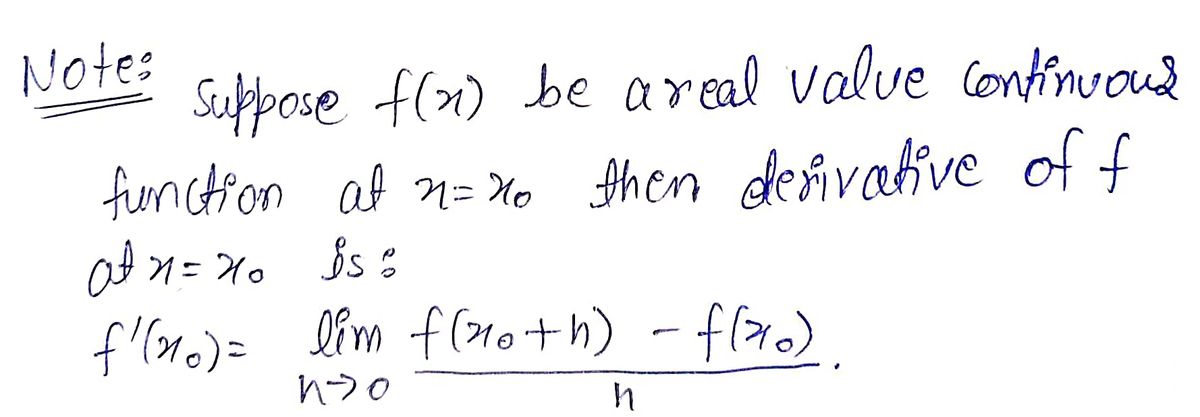 Note: Suppose f(x) be a real value continuous
function at x = x₀ then derivative of f
at x = x₀ is :
f'(x₀) = lim f(x₀+h) - f(x₀).
h→0 h